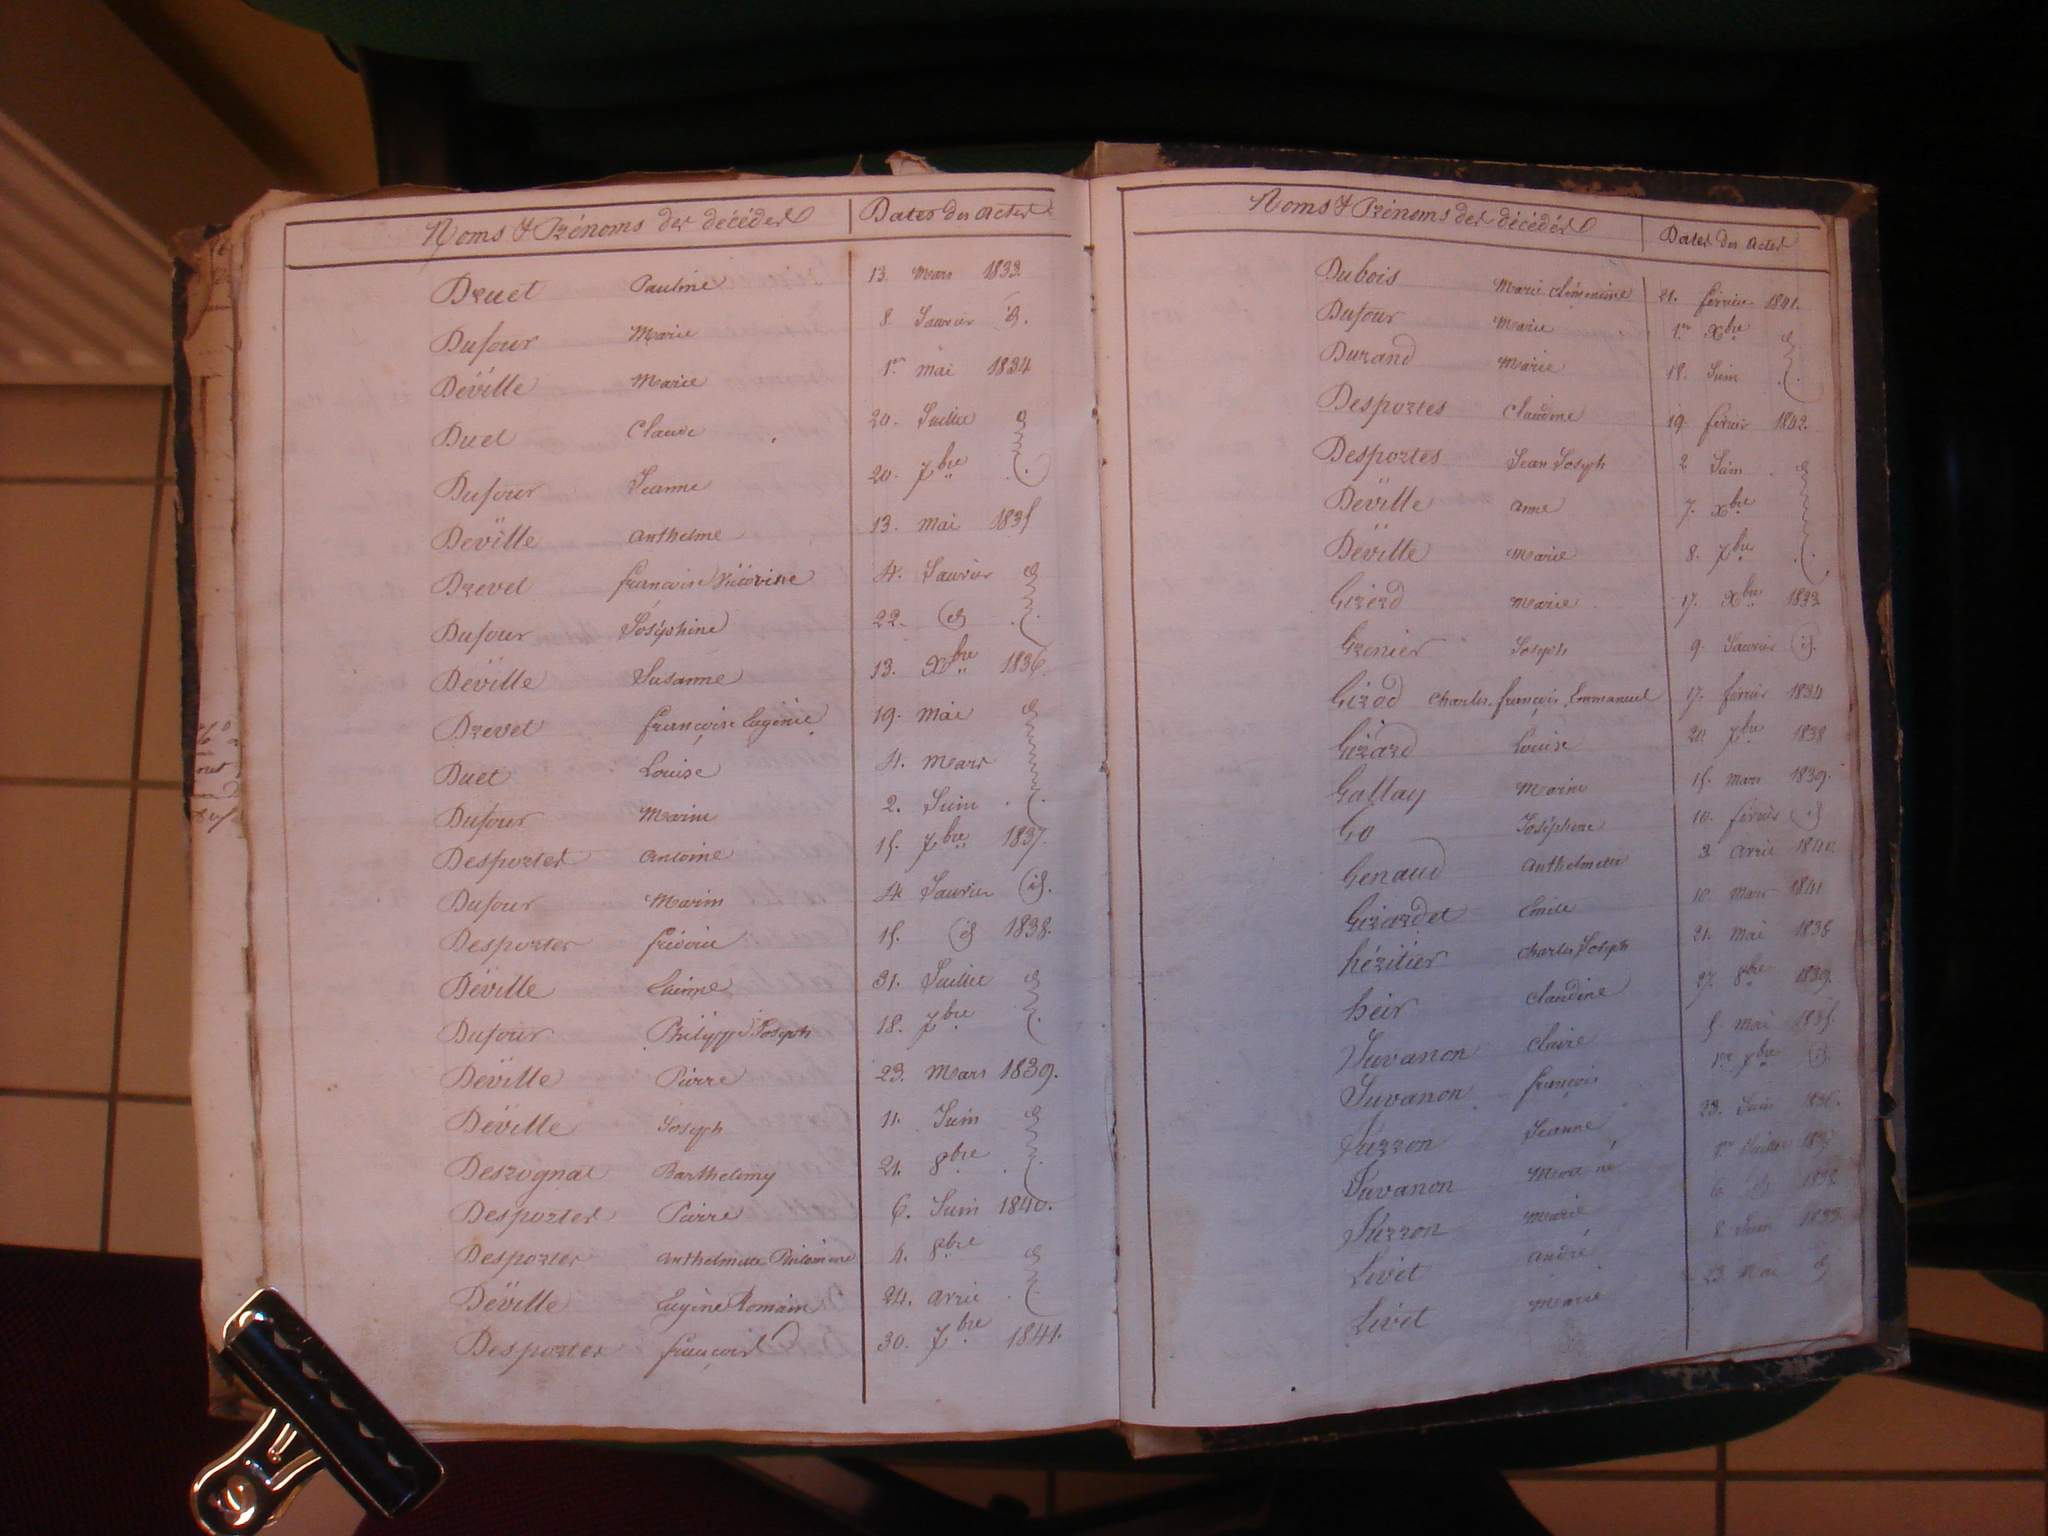 Noms & Prénoms des décédés Dates des Actes
Druet Pauline 13. Mars 1833.
Dufour Marie 8 Janvier id.
Déville Marie 1er mai 1834
Duet Claude 20. Juillet id
Dufour Jeanne 20. 7bre
Déville Anthelme 13. Mai 1835
Drevet 4. Janvier id
Dufour Joséphine 22. id
Déville Susanne 13. Xbre 1836.
Drevet françoise Eugénie 19. Mai id
Duet Louise 4. Mars
Dufour Marin 2. Juin
Desportes Antoine 15. 7bre 1837.
Dufour Marin 4 Janvier id.
Desportes 15. id 1838.
Déville 31. Juillet id
Dufour Philippe Joseph 18. 7bre
Déville Pierre 23. Mars 1839.
Déville Joseph 11. Juin id
Desrognat Barthelemy 21. 8bre
Desportes Pierre 6. Juin 1840.
Desportes Anthelmette Philomène 4. 8bre id
Déville Eugène Romain 24. Avril
Desportes françois 30. 7bre 1841.
Noms & Prénoms des décédés Dates des Actes
Dubois Marie Clémentine 21. février 1841.
Dufour Marie 1er Xbre id
Durand Marie 18. Juin
Desportes Claudine 19. février 1842.
Desportes Jean Joseph 2 Juin id
Déville Anne 7. Xbre
Déville Marie 8. 7bre
Girerd Marie 17. Xbre 1833
Grenier Joseph 9. Janvier id.
Girod Charles, françois, Emmanuel 17. février 1834
Girard Louise 20. 7bre 1838
Gallay Marin 15. Mars 1839.
Go Joséphine 10. février id
Genaud Anthelmette 3 Avril 1840.
Girardet Emile 10. Mars 1841
héritier Charles Joseph 21. Mai 1838
heir Claudine 27. 8bre 1839.
Juvanon Claire 5 Mai 1835.
Juvanon françois 1er 7bre id.
Juzzon Jeanne 23. Juin 1836.
Juvanon Mort né 1er Juillet 1837
Juzzon Marie 6 id 1838
Livet André 8 Juin 1833
Livet Marie 23 Mai id